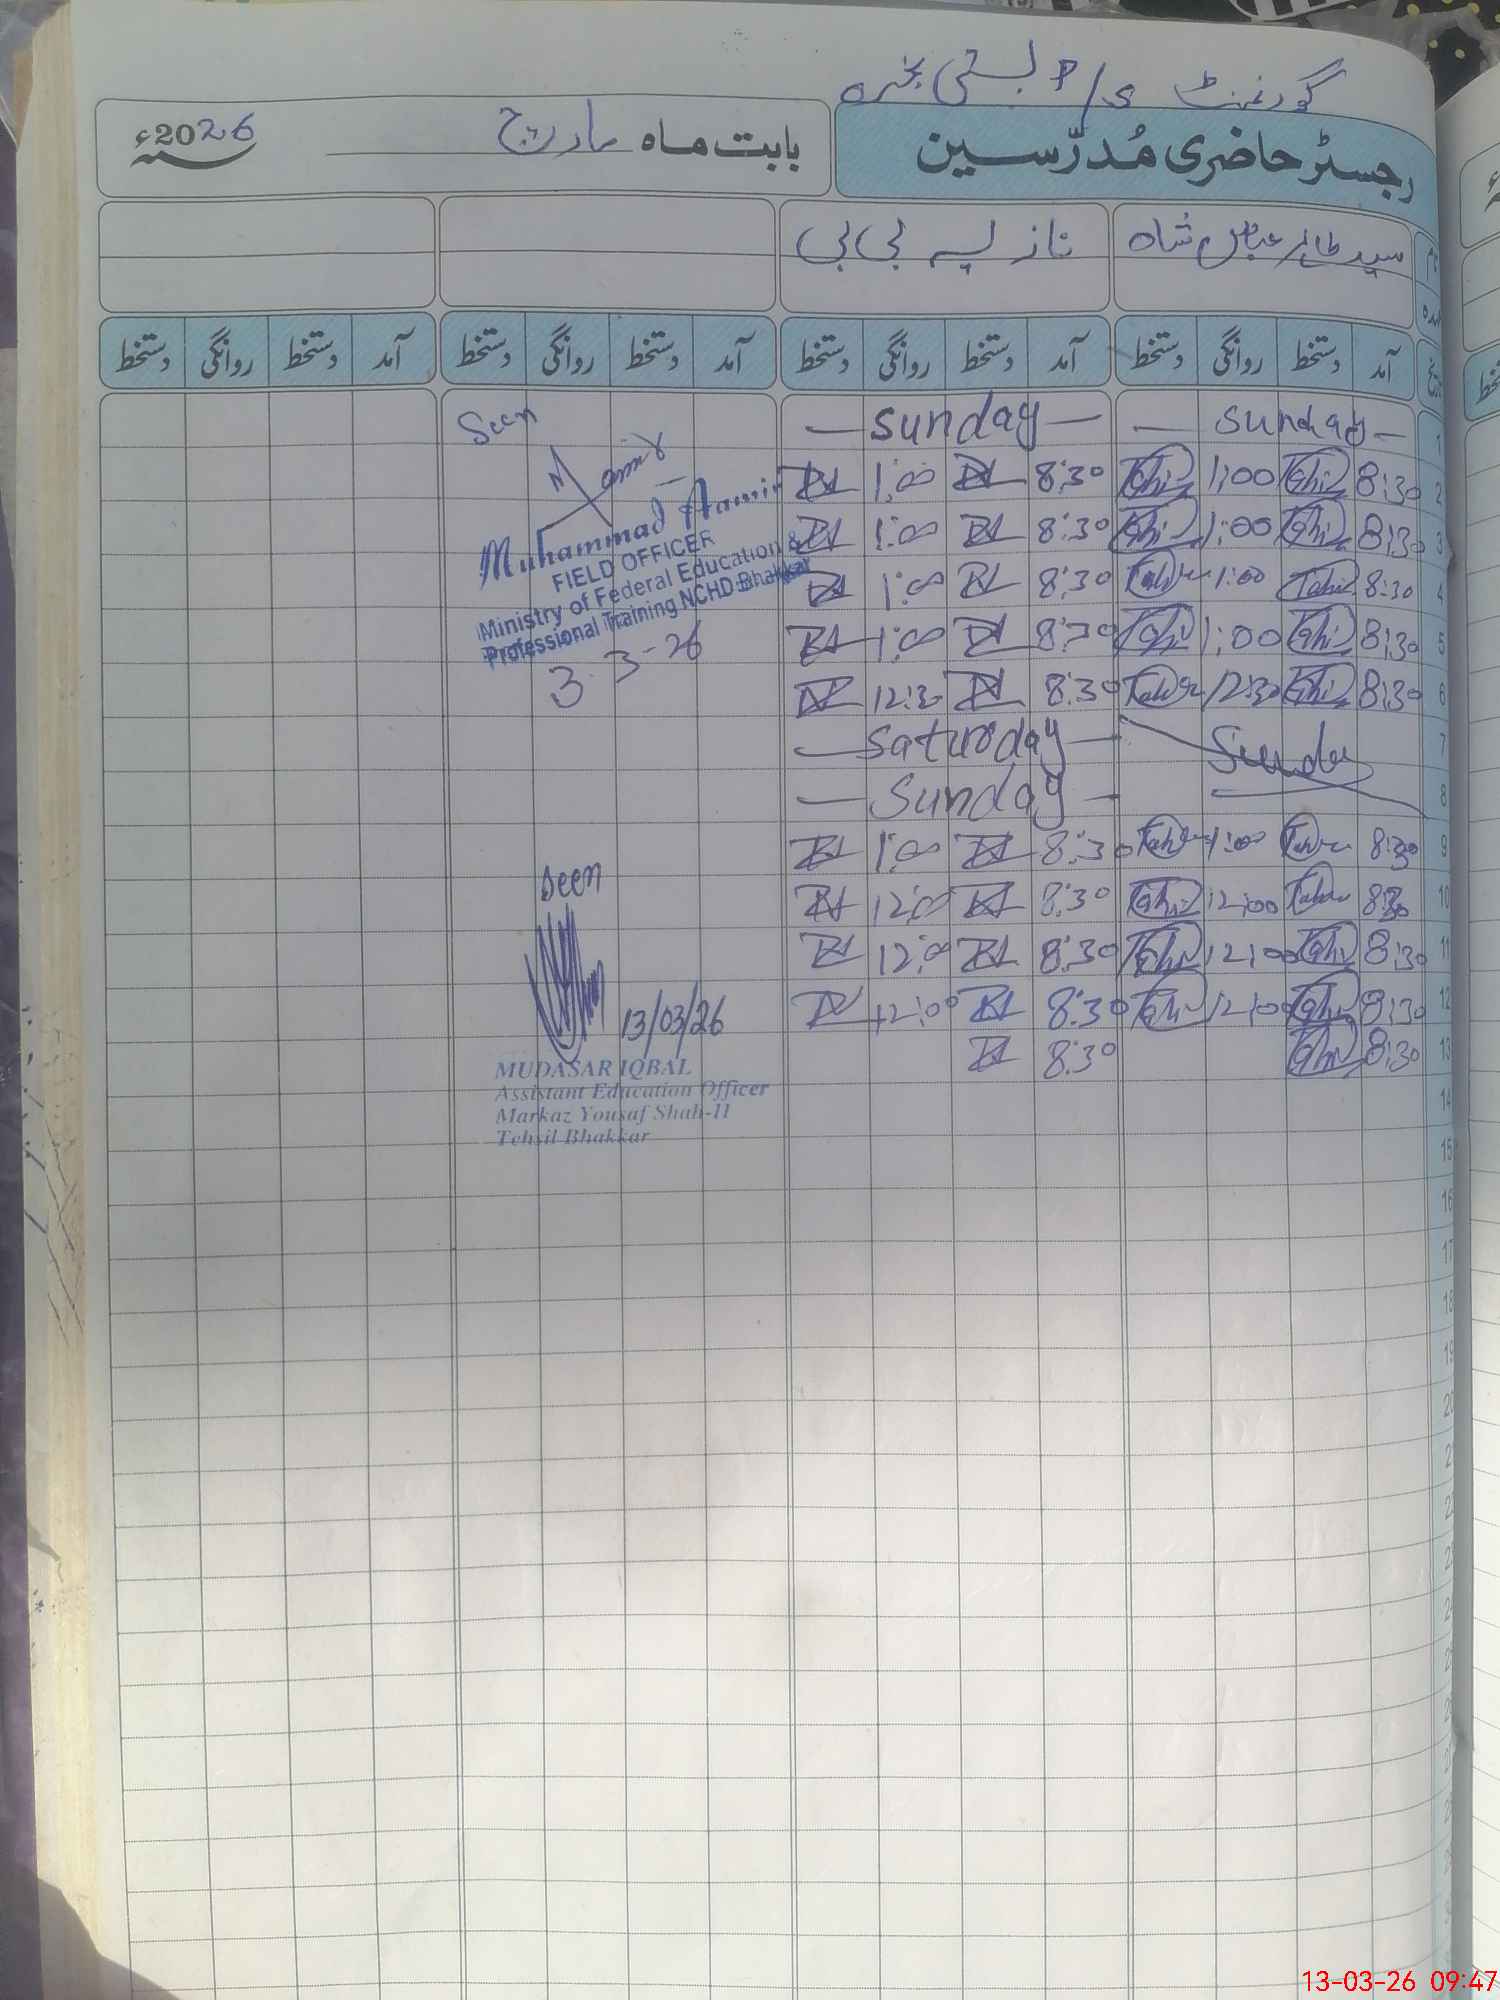 گورنمنٹ P/s بستی
رجسٹر حاضری مُدرّسین
بابت ماہ مارچ
سنہ 2026ء
نام سید طاہر عباس شاہ نازیہ بی بی
آمد دستخط روانگی دستخط آمد دستخط روانگی دستخط آمد دستخط روانگی دستخط آمد دستخط روانگی دستخط
1 — Sunday — — Sunday —
2 8:30 Tahir 1:00 Tahir 8:30 1:00
3 8:30 Tahir 1:00 Tahir 8:30 1:00
4 8:30 Tahir 1:00 Tahir 8:30 1:00
5 8:30 Tahir 1:00 Tahir 8:30 1:00
6 8:30 Tahir 12:30 Tahir 8:30 12:30
7 Sunday — Saturday —
8 — Sunday —
9 8:30 Tahir 1:00 Tahir 8:30 1:00
10 8:30 Tahir 12:00 Tahir 8:30 12:00
11 8:30 Tahir 12:00 Tahir 8:30 12:00
12 8:30 Tahir 12:00 Tahir 8:30 12:00
13 8:30 Tahir 8:30
14
15
16
17
18
19
Seen
M Aamir
Muhammad Aamir
FIELD OFFICER
Ministry of Federal Education &
Professional Training NCHD Bhakkar
3-3-26
Seen
13/03/26
MUDASAR IQBAL
Assistant Education Officer
Markaz Yousaf Shah-II
Tehsil Bhakkar
13-03-26 09:47